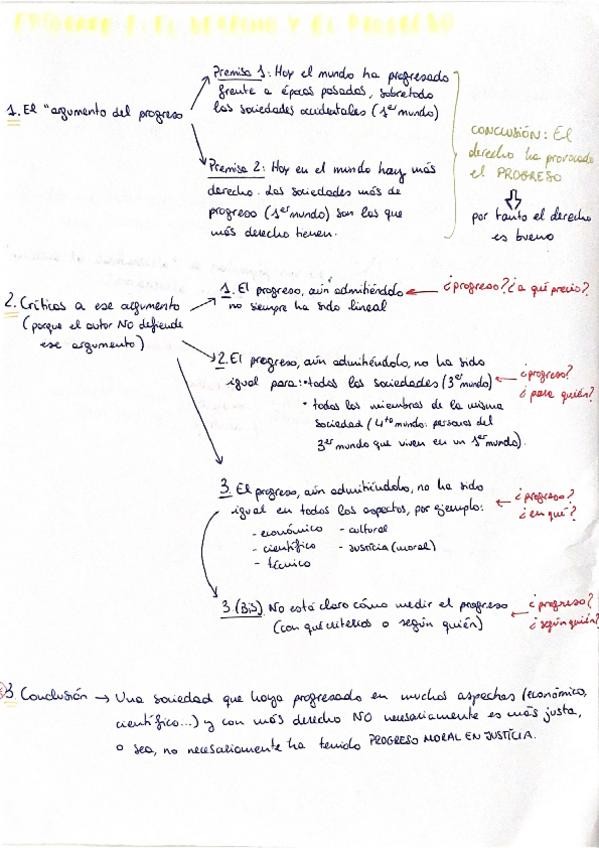 EPÍGRAFE 7: EL DERECHO Y EL PROGRESO
1. El "argumento del progreso
Premisa 1: Hoy el mundo ha progresado
frente a épocas pasadas, sobretodo
las sociedades occidentales (1er mundo)
Premisa 2: Hoy en el mundo hay más
derecho. Las sociedades más de
progreso (1er mundo) son las que
más derecho tienen.
CONCLUSIÓN: El
derecho ha provocado
el PROGRESO
por tanto el derecho
es bueno
2. Críticas a ese argumento
(porque el autor NO defiende
ese argumento)
1. El progreso, aún admitiéndolo
no siempre ha sido lineal
¿progreso? ¿a qué precio?
2. El progreso, aún admitiéndolo, no ha sido
igual para: • todas las sociedades (3er mundo)
• todos los miembros de la misma
sociedad (4to mundo: personas del
3er mundo que viven en un 1er mundo).
¿progreso?
¿para quién?
3. El progreso, aún admitiéndolo, no ha sido
igual en todos los aspectos, por ejemplo:
- económico - cultural
- científico - justicia (moral)
- técnico
¿progreso?
¿en qué?
3 (BIS) No está claro cómo medir el progreso
(con qué criterios o según quién)
¿progreso?
¿según quién?
3 Conclusión → Una sociedad que haya progresado en muchos aspectos (económico,
científico...) y con más derecho NO necesariamente es más justa,
o sea, no necesariamente ha tenido PROGRESO MORAL EN JUSTICIA.